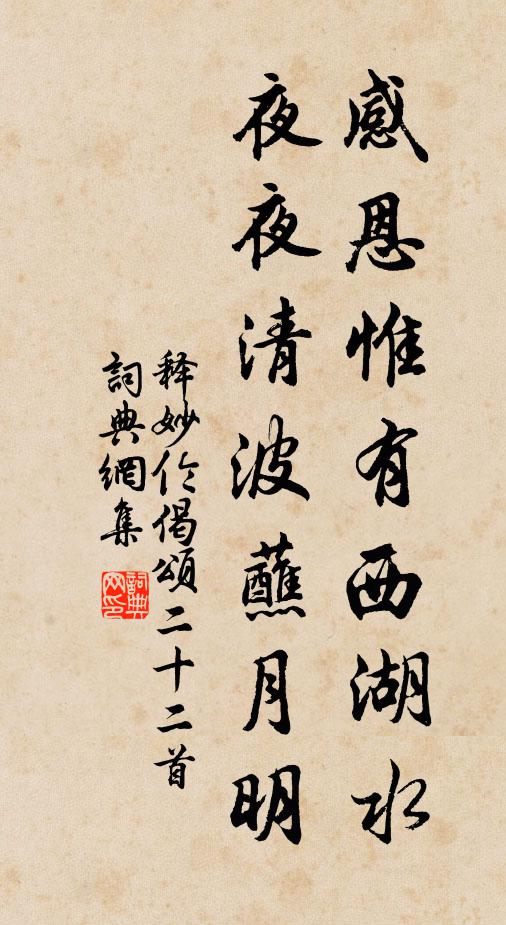 感恩惟有西湖水
夜夜清波蘸月明
释妙伶偈頌二十二首
詞典網集
詞典
网印